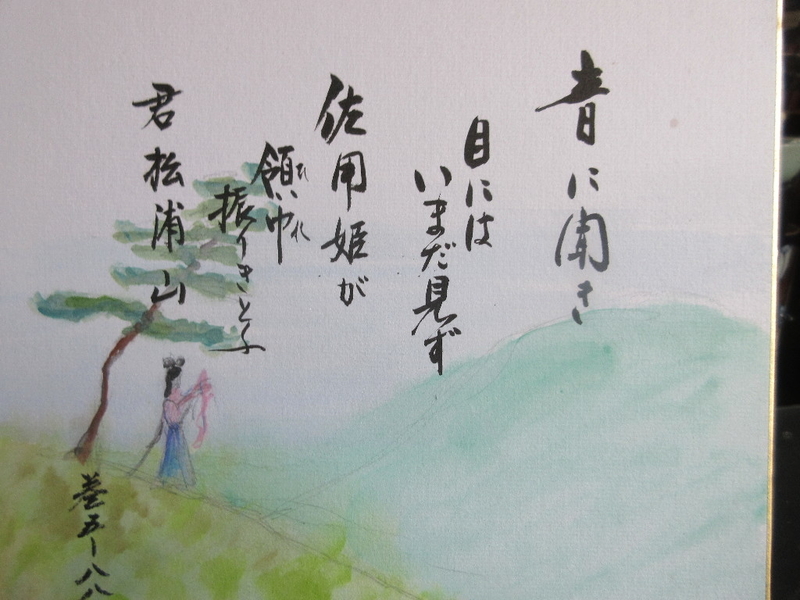 音に聞き
目には
いまだ見ず
佐用姫が
領巾
ひれ
振りきとふ
君松浦山
巻五ー八八